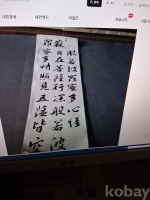 커뮤니티
般若波羅蜜多心經
觀自在菩薩行深般若波
羅蜜多時照見五蘊皆空
kobay